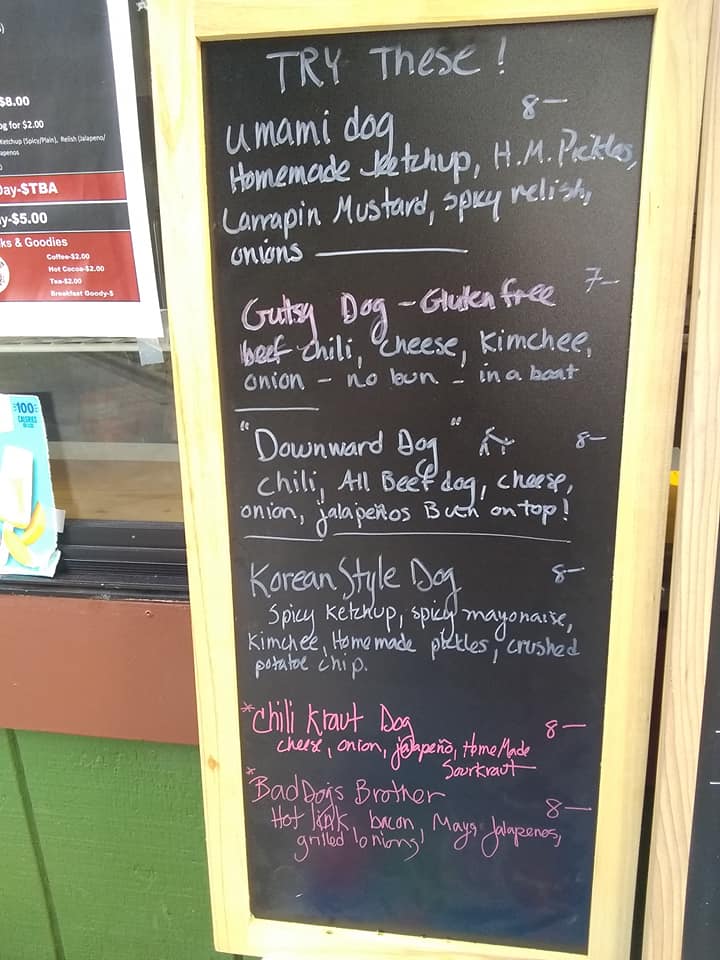 $8.00
og for $2.00
Ketchup (Spicy/Plain), Relish (Jalapeno/
apenos
Day-$TBA
y-$5.00
ks & Goodies
Coffee-$2.00
Hot Cocoa-$2.00
Tea-$2.00
Breakfast Goody-$
100
CALORIES
TRY These !
umami dog 8-
Homemade Ketchup, H.M. Pickles,
Larrapin Mustard, spicy relish,
onions
Gutsy Dog - Gluten free 7-
beef chili, cheese, Kimchee,
onion - no bun - in a boat
"Downward Dog" 8-
chili, All Beef dog, cheese,
onion, jalapeños Bun on top!
Korean Style Dog 8-
Spicy Ketchup, spicy mayonaise,
Kimchee, Homemade pickles, crushed
potatoe chip.
*Chili Kraut Dog 8-
cheese, onion, jalapeño, HomeMade
Sourkraut
*BadDogs Brother 8-
Hot link, bacon, Mayo, Jalapenos,
grilled onions,